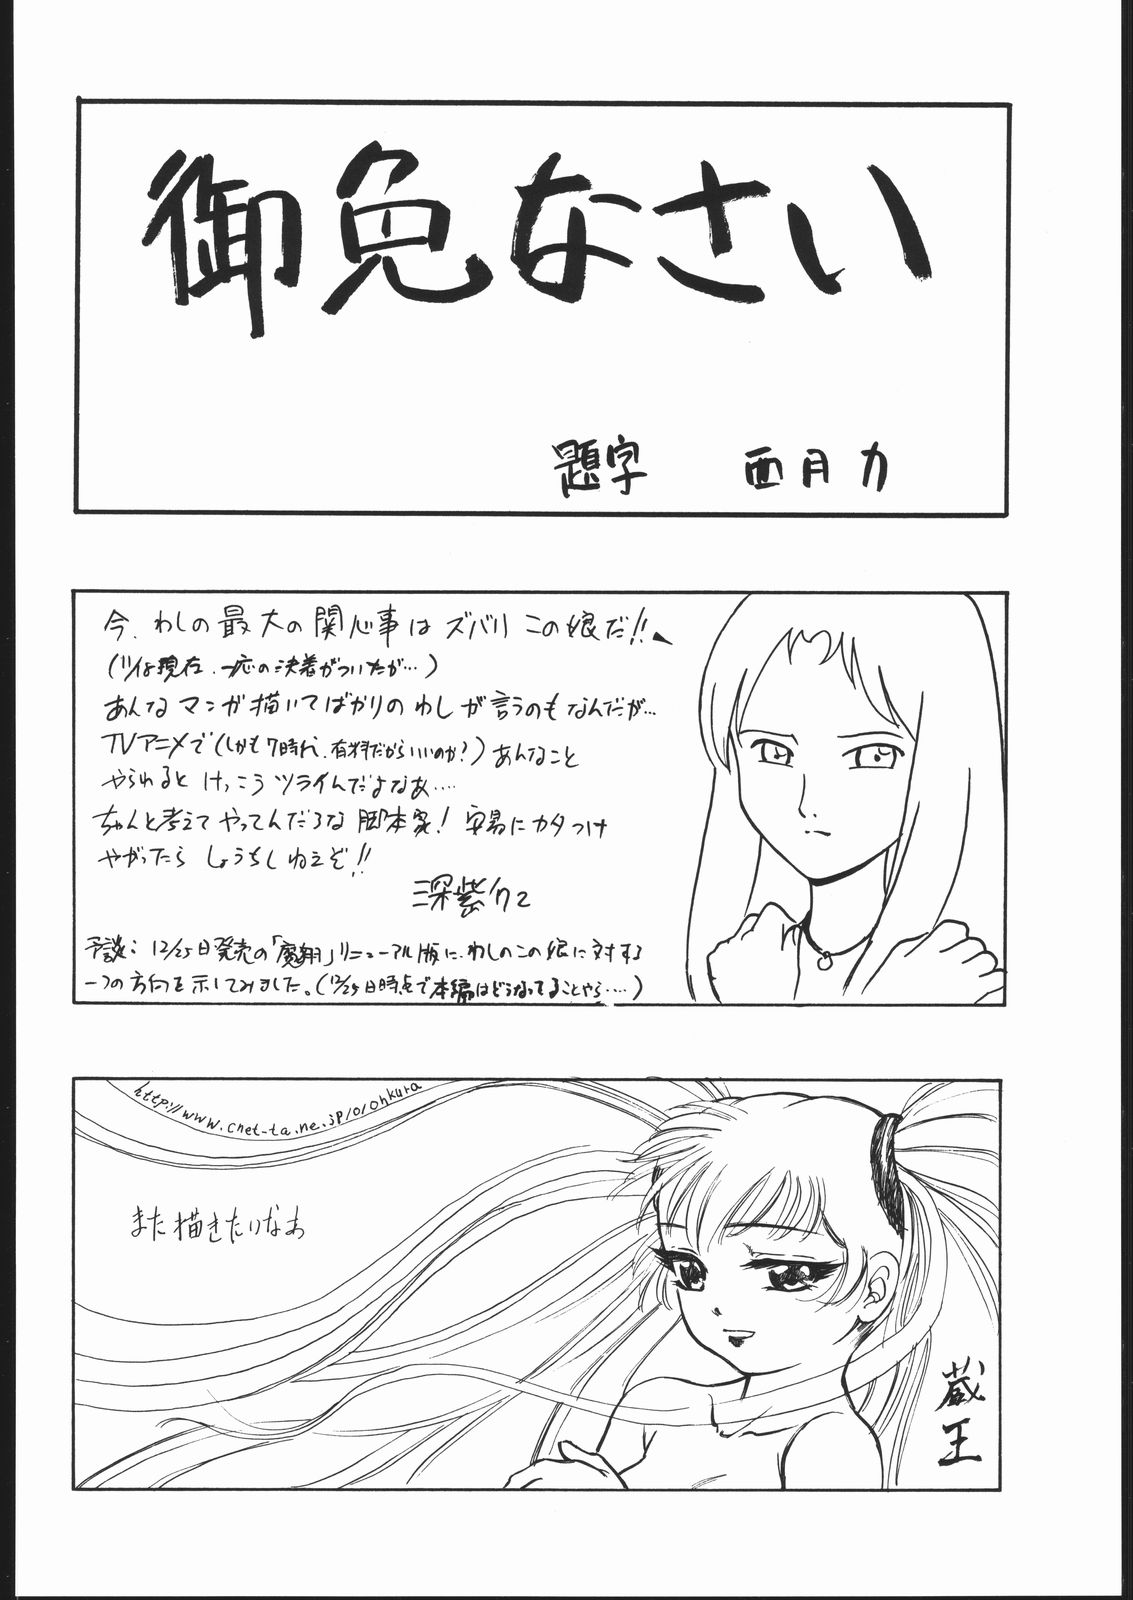 御免なさい
題字 西月力
今、わしの最大の関心事はズバリこの娘だ!!
(ツイよ現在、一応の決着がついたが…)
あんなマンガ描いてばかりのわしが言うのもなんだが…
TVアニメで(しかも7時代、有料だからいいのか?)あんなこと
やられるとけっこうツライんだよなぁ‥‥
ちゃんと考えてやってんだろな脚本家!安易にカタつけ
やがったらしょうちしねえぞ!!
深紫
予談:12/25日発売の「魔翔」リニューアル版に、わしのこの娘に対する
一つの方向を示してみました。(12/25日時点で本編はどうなってることやら‥‥)
http://www.cnet-ta.ne.jp/o/ohkura
また描きたいなあ
蔵王